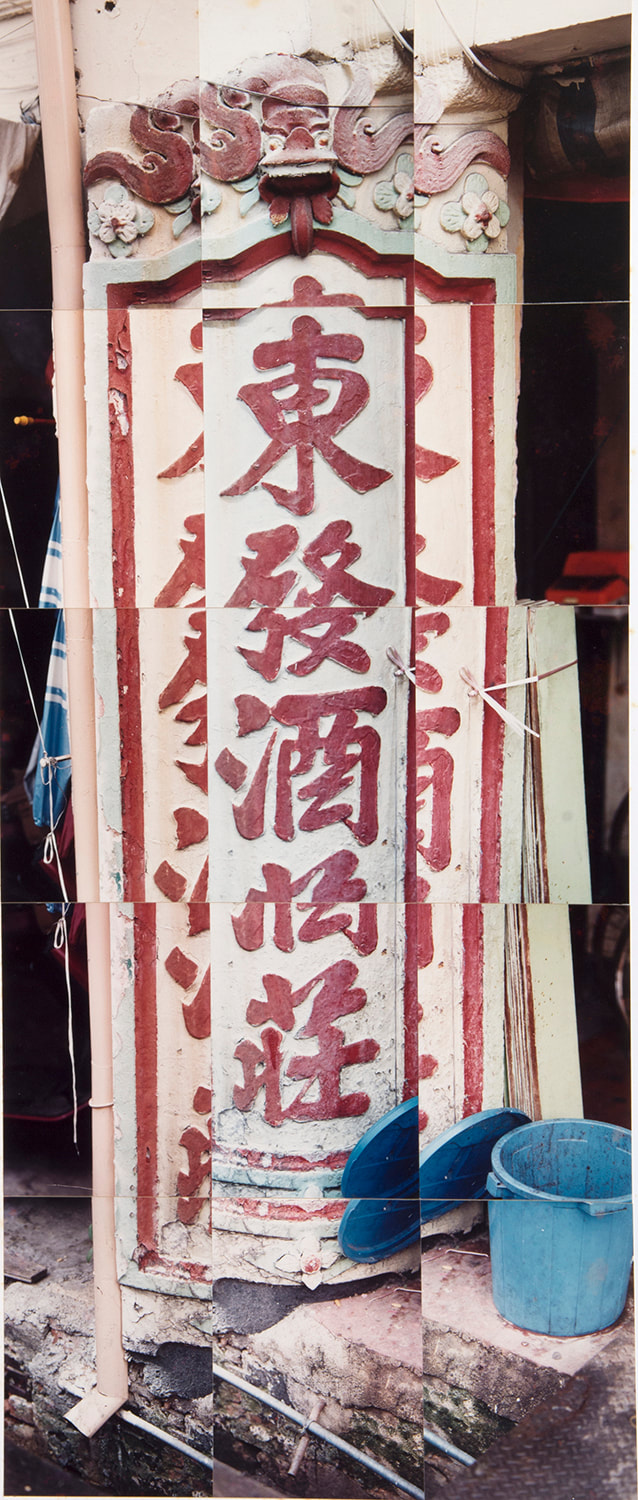 東發酒莊